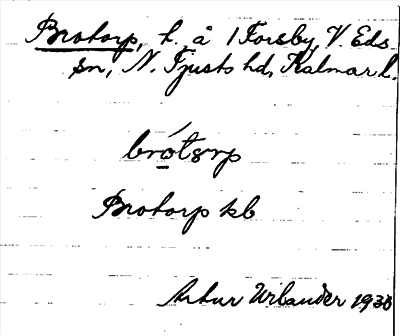 Brotorp, h. å 1 Forsby, V. Eds
sn, N. Tjusts hd, Kalmar l.
brótorp
Brotorp kb
Artur Urbander 1930